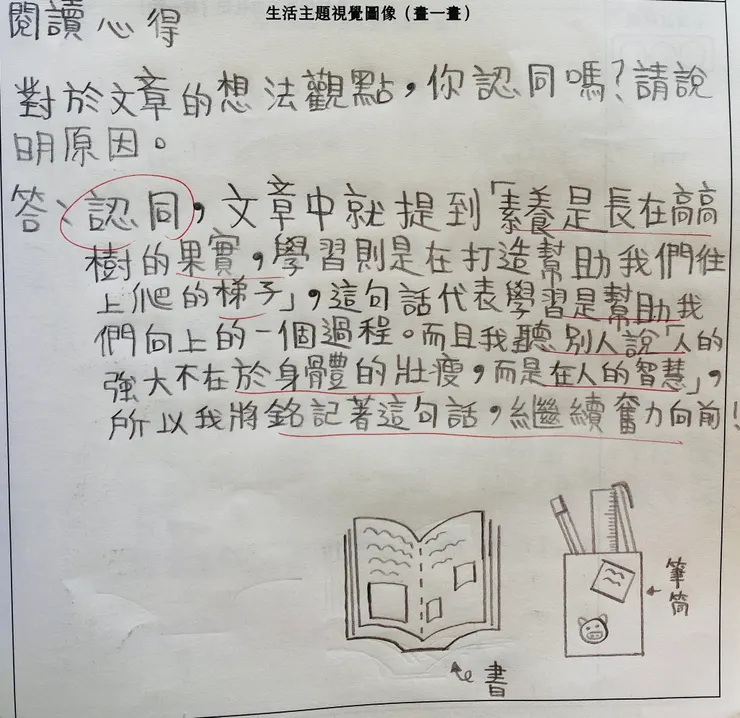 生活主題視覺圖像（畫一畫）
閱讀心得
對於文章的想法觀點，你認同嗎？請說
明原因。
答、認同，文章中就提到「素養是長在高高
樹的果實，學習則是在打造幫助我們往
上爬的梯子」，這句話代表學習是幫助我
們向上的一個過程。而且我聽別人說「人的
強大不在於身體的壯瘦，而是在人的智慧」，
所以我將銘記著這句話，繼續奮力向前！
筆筒
書